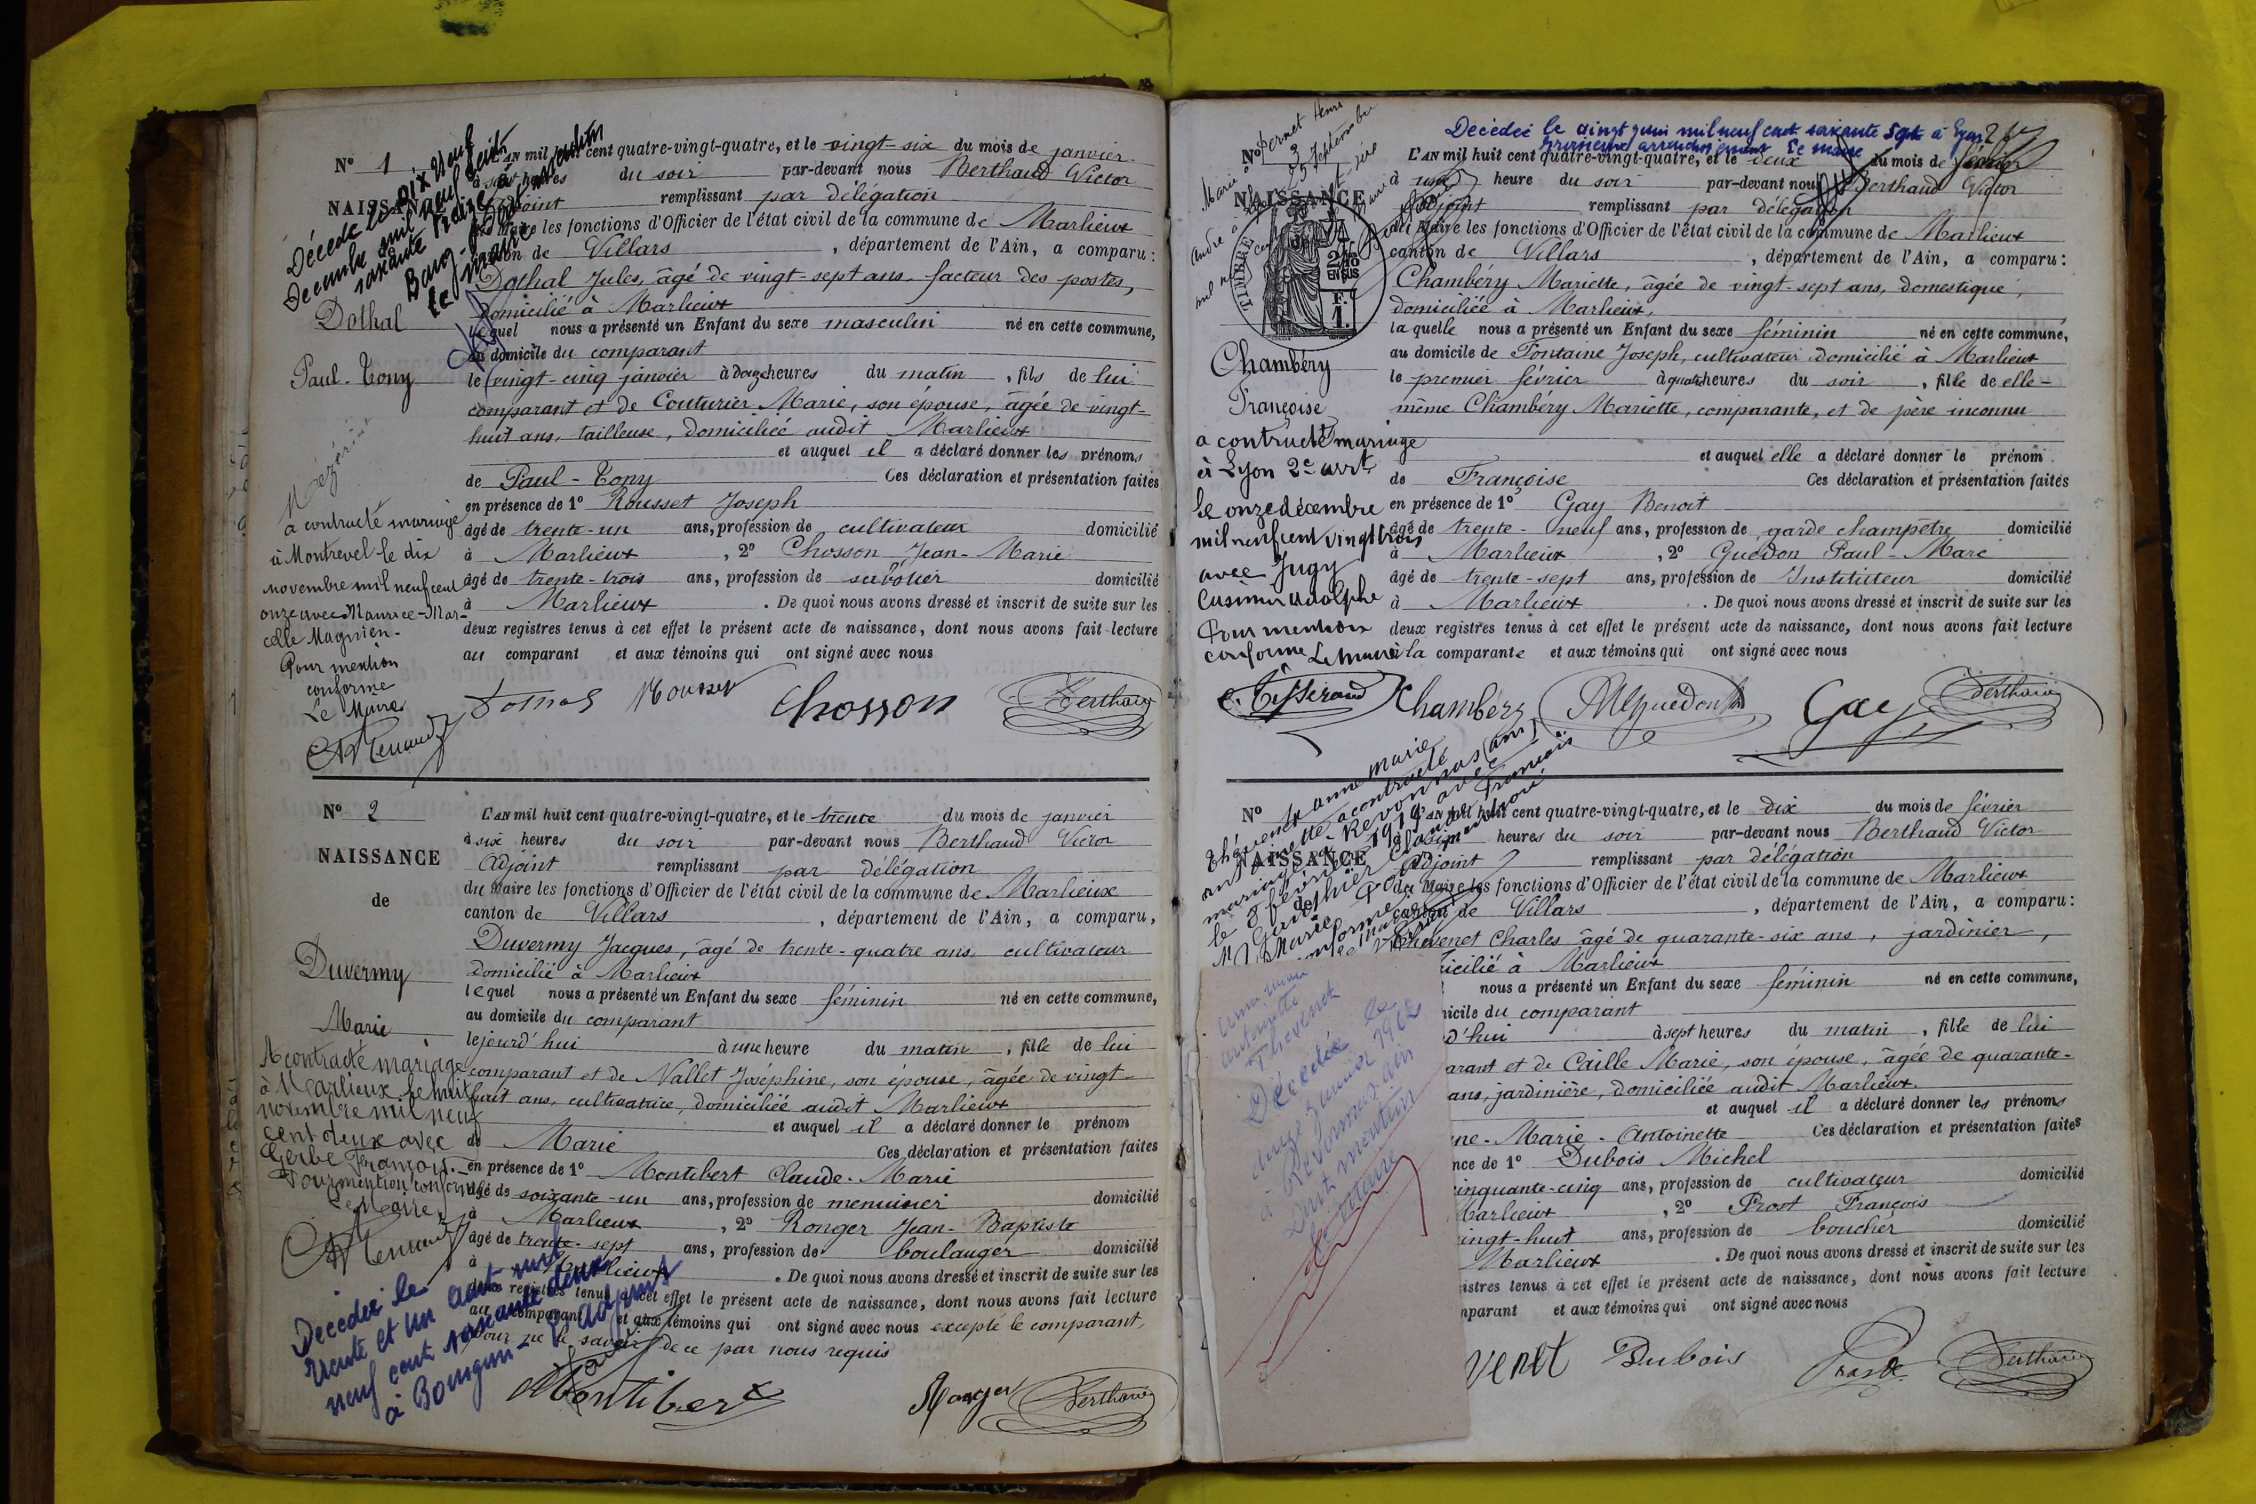 N° 1
NAISSANCE
Dothal
Paul-Tony
a contracté mariage
à Montrevel le dix
novembre mil neuf cent
onze avec Maurice-Mar-
celle Magnien.
Pour mention
conforme
Le Maire
Décédé le dix neuf
Décembre mil neuf cent
soixante
Bourg
Le maire
L'AN mil huit cent quatre-vingt-quatre, et le vingt-six du mois de janvier
à sept heures du soir par-devant nous Berthaud Victor
adjoint remplissant par délégation
du Maire les fonctions d'Officier de l'état civil de la commune de Marlieux
canton de Villars, département de l'Ain, a comparu:
Dothal Jules, âgé de vingt-sept ans, facteur des postes,
domicilié à Marlieux
lequel nous a présenté un Enfant du sexe masculin né en cette commune,
au domicile du comparant
le vingt-cinq janvier à douze heures du matin, fils de lui
comparant et de Couturier Marie, son épouse, âgée de vingt-
huit ans, tailleuse, domiciliée audit Marlieux
et auquel il a déclaré donner les prénoms
de Paul-Tony Ces déclaration et présentation faites
en présence de 1° Rousset Joseph
âgé de trente-un ans, profession de cultivateur domicilié
à Marlieux, 2° Chosson Jean-Marie
âgé de trente-trois ans, profession de sabotier domicilié
à Marlieux. De quoi nous avons dressé et inscrit de suite sur les
deux registres tenus à cet effet le présent acte de naissance, dont nous avons fait lecture
au comparant et aux témoins qui ont signé avec nous
Chosson Berthaud
N° 2
NAISSANCE
de
Duvermy
Marie
A contracté mariage
à Marlieux le huit
novembre mil neuf
cent deux avec
Gerbe François.
Pour mention conforme
Le Maire,
Décédée le
trente et un août mil
neuf cent soixante deux
à Bourgoin
L'AN mil huit cent quatre-vingt-quatre, et le trente du mois de janvier
à six heures du soir par-devant nous Berthaud Victor
Adjoint remplissant par délégation
du Maire les fonctions d'Officier de l'état civil de la commune de Marlieux
canton de Villars, département de l'Ain, a comparu,
Duvermy Jacques, âgé de trente-quatre ans, cultivateur
domicilié à Marlieux
lequel nous a présenté un Enfant du sexe féminin né en cette commune,
au domicile du comparant
lejourd'hui à une heure du matin, fille de lui
comparant et de Nallet Joséphine, son épouse, âgée de vingt-
huit ans, cultivatrice, domiciliée audit Marlieux
et auquel il a déclaré donner le prénom
de Marie Ces déclaration et présentation faites
en présence de 1° Montibert Claude-Marie
âgé de soixante-un ans, profession de menuisier domicilié
à Marlieux, 2° Ronger Jean-Baptiste
âgé de trente-sept ans, profession de boulanger domicilié
à Marlieux. De quoi nous avons dressé et inscrit de suite sur les
deux registres tenus à cet effet le présent acte de naissance, dont nous avons fait lecture
au comparant et aux témoins qui ont signé avec nous excepté le comparant,
pour ne le savoir de ce par nous requis
Montibert Ronger Berthaud
Décédée le vingt juin mil neuf cent soixante sept à Lyon
arrondissement Le maire
N° 3
NAISSANCE
TIMBRE
2/10 EN SUS
1 F.
Chambéry
Françoise
a contracté mariage
à Lyon 2e arrt
le onze décembre
mil neuf cent vingt trois
avec Jugy
Casimir Adolphe
Pour mention
conforme Le Maire
L'AN mil huit cent quatre-vingt-quatre, et le deux du mois de février
à une heure du soir par-devant nous Berthaud Victor
Adjoint remplissant par délégation
du Maire les fonctions d'Officier de l'état civil de la commune de Marlieux
canton de Villars, département de l'Ain, a comparu:
Chambéry Mariette, âgée de vingt-sept ans, domestique,
domiciliée à Marlieux,
laquelle nous a présenté un Enfant du sexe féminin né en cette commune,
au domicile de Fontaine Joseph, cultivateur domicilié à Marlieux
le premier février à quatre heures du soir, fille de elle-
même Chambéry Mariette, comparante, et de père inconnu
et auquel elle a déclaré donner le prénom
de Françoise Ces déclaration et présentation faites
en présence de 1° Gay Benoit
âgé de trente-neuf ans, profession de garde champêtre domicilié
à Marlieux, 2° Guédon Paul-Marc
âgé de trente-sept ans, profession de Instituteur domicilié
à Marlieux. De quoi nous avons dressé et inscrit de suite sur les
deux registres tenus à cet effet le présent acte de naissance, dont nous avons fait lecture
à la comparante et aux témoins qui ont signé avec nous
Tisserand Chambéry Guédon Gay Berthaud
N°
NAISSANCE
de
Thévenet anne marie
antoinette a contracté
mariage à Revonnas (Ain)
le 8 février 1919 avec
Marie
L'AN mil huit cent quatre-vingt-quatre, et le dix du mois de février
heures du soir par-devant nous Berthaud Victor
Adjoint remplissant par délégation
du Maire les fonctions d'Officier de l'état civil de la commune de Marlieux
canton de Villars, département de l'Ain, a comparu:
Thévenet Charles âgé de quarante-six ans, jardinier,
icilié à Marlieux
nous a présenté un Enfant du sexe féminin né en cette commune,
icile du comparant
d'hui à sept heures du matin, fille de lui
arant et de Caille Marie, son épouse, âgée de quarante-
ans, jardinière, domiciliée audit Marlieux.
et auquel il a déclaré donner les prénoms
ne-Marie-Antoinette Ces déclaration et présentation faites
nce de 1° Dubois Michel
inquante-cinq ans, profession de cultivateur domicilié
Marlieux, 2° Prost François
ingt-huit ans, profession de boucher domicilié
Marlieux. De quoi nous avons dressé et inscrit de suite sur les
istres tenus à cet effet le présent acte de naissance, dont nous avons fait lecture
mparant et aux témoins qui ont signé avec nous
venet Dubois Prost Berthaud
anne marie
antoinette
Thévenet
Décédée le
janvier 1962
à Revonnas Ain
Dont mention